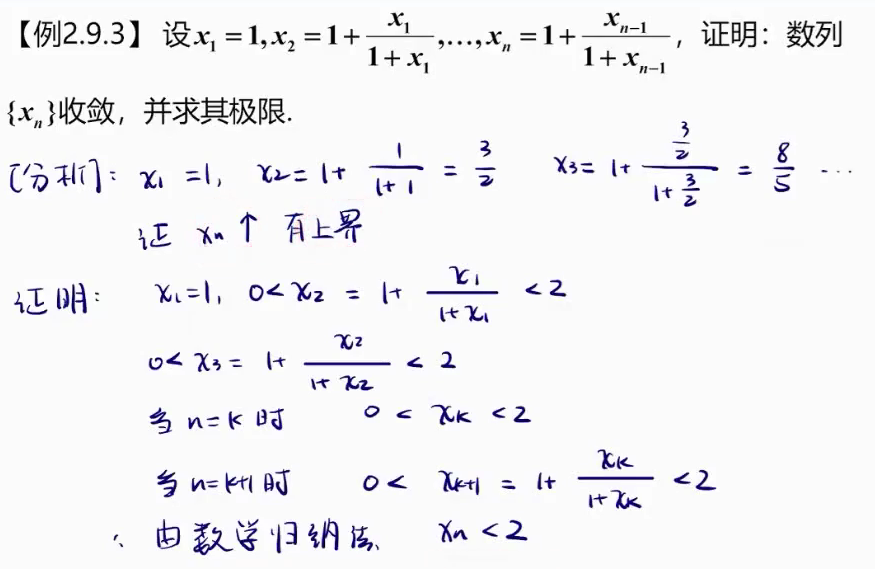 【例2.9.3】 设 x₁ = 1, x₂ = 1 + x₁/(1 + x₁), …, xₙ = 1 + xₙ₋₁/(1 + xₙ₋₁)，证明：数列
{xₙ}收敛，并求其极限.
[分析]: x₁ = 1, x₂ = 1 + 1/(1 + 1) = 3/2 x₃ = 1 + (3/2)/(1 + 3/2) = 8/5 …
证 xₙ ↑ 有上界
证明: x₁ = 1, 0 < x₂ = 1 + x₁/(1 + x₁) < 2
0 < x₃ = 1 + x₂/(1 + x₂) < 2
当 n = k 时 0 < xₖ < 2
当 n = k+1 时 0 < xₖ₊₁ = 1 + xₖ/(1 + xₖ) < 2
∴ 由数学归纳法, xₙ < 2